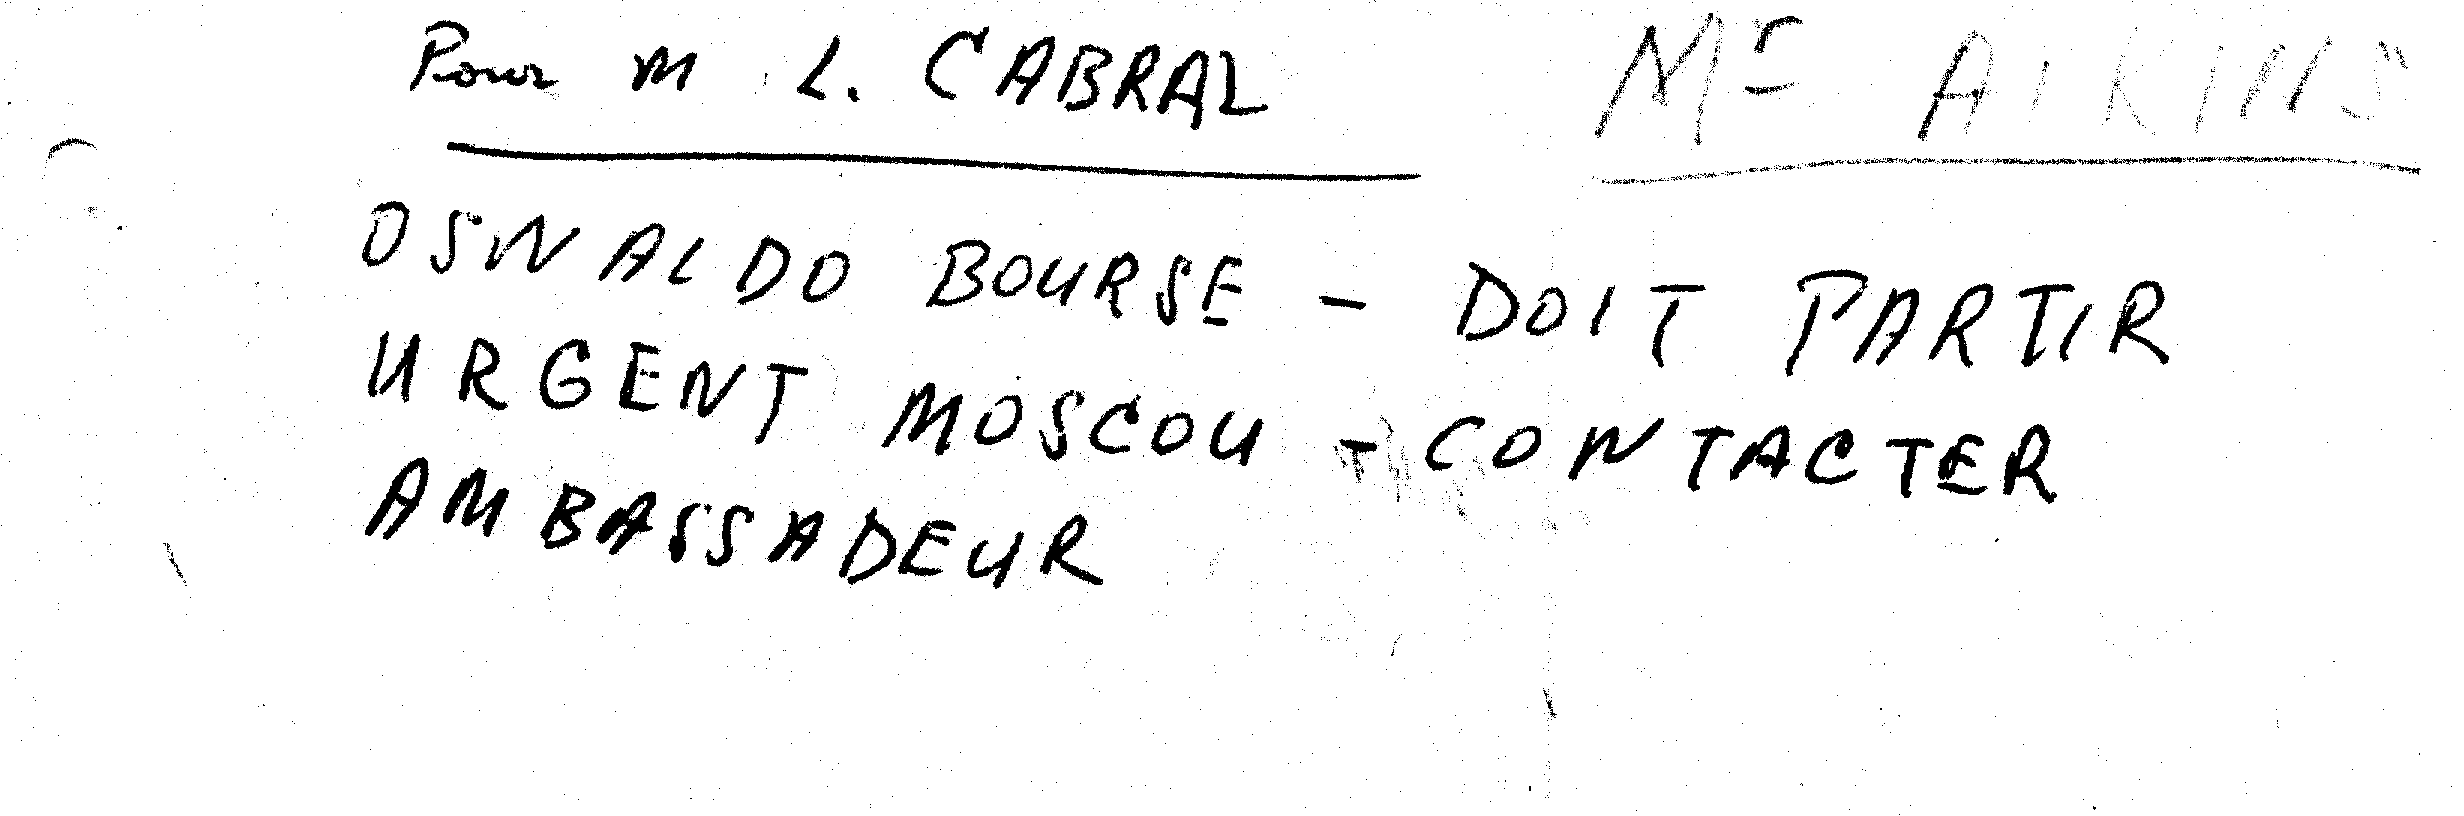 Pour M L. CABRAL Mr AIKINS
OSWALDO BOURSE - DOIT PARTIR
URGENT MOSCOU - CONTACTER
AMBASSADEUR